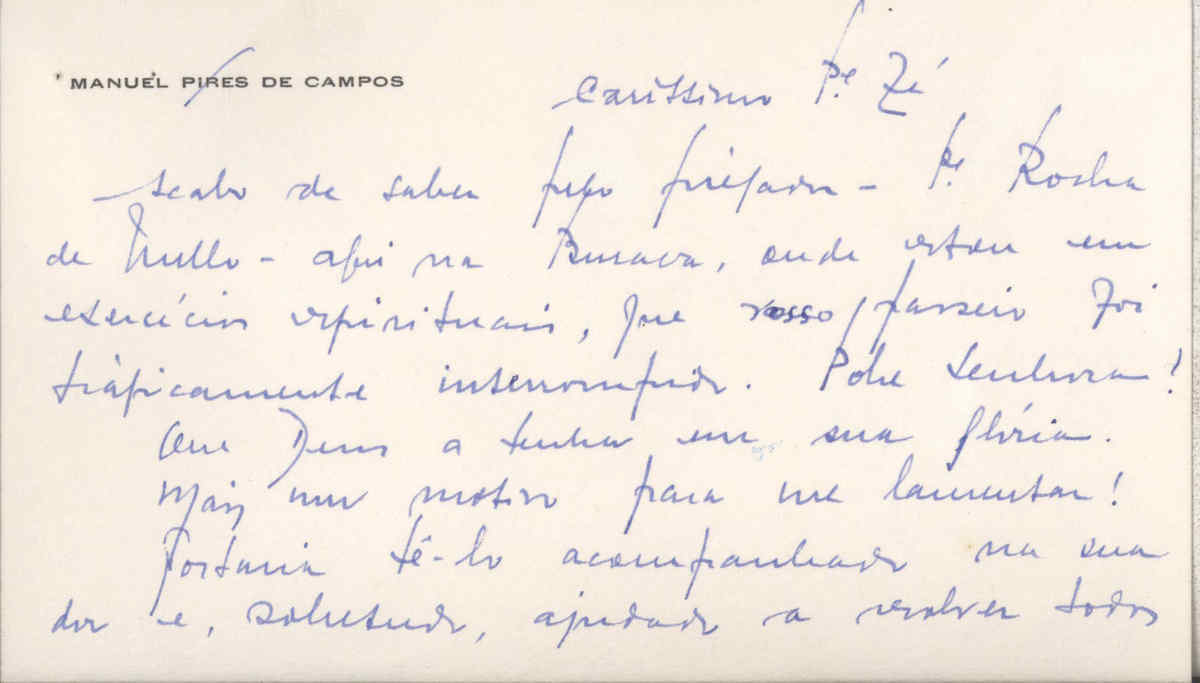 MANUEL PIRES DE CAMPOS
Caríssimo P.e Zé
Acabo de saber pelo prégador - P.e Rocha
de Mello - aqui na Buraca, onde estou em
exercícios espirituais, que vosso passeio foi
tràgicamente interrompido. Pobre Senhora!
Que Deus a tenha em sua glória.
Mais um motivo para me lamentar!
Gostaria tê-lo acompanhado na sua
dor e, sobretudo, ajudado a resolver todos